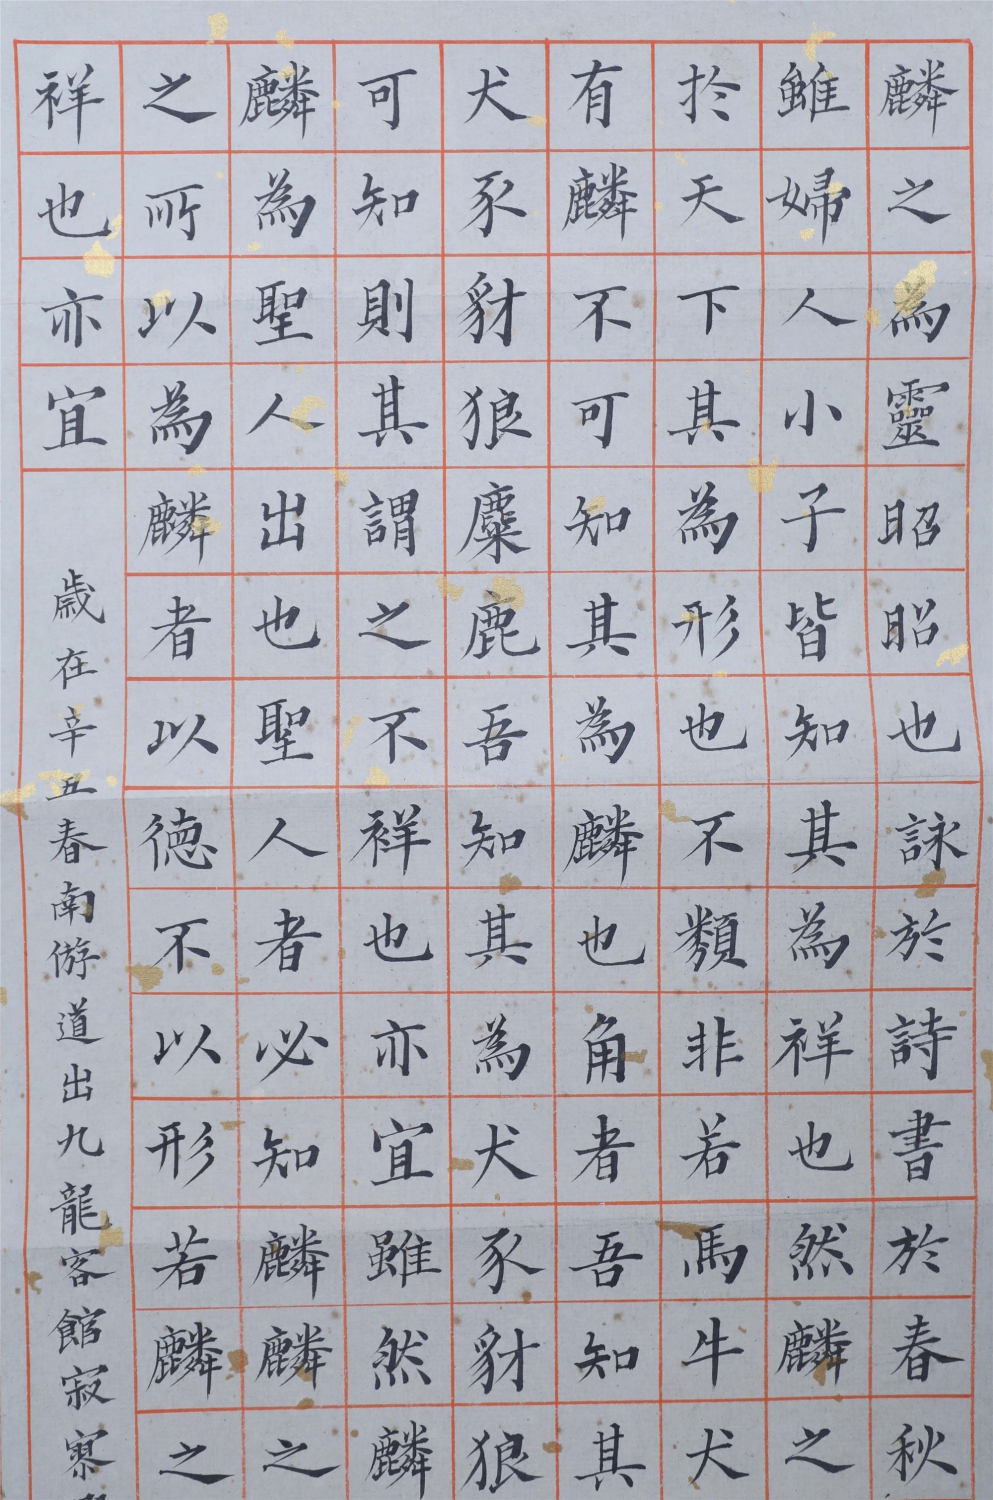 麟之為靈昭昭也詠於詩書於春秋
雖婦人小子皆知其為祥也然麟之
扵天下其為形也不類非若馬牛犬
有麟不可知其為麟也角者吾知其
犬豕豺狼麋鹿吾知其為犬豕豺狼
可知則其謂之不祥也亦宜雖然麟
麟為聖人出也聖人者必知麟麟之
之所以為麟者以德不以形若麟之
祥也亦宜
歲在辛丑春南游道出九龍客館寂寥